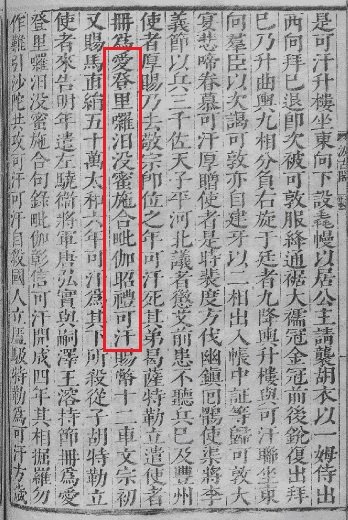 汲古閣
是可汗升樓坐東向下設毳幔以居公主請襲胡衣以一姆侍出
西向拜已退即次被可敦服絳通裾大襦冠金冠前後銳復出拜
已乃升曲輿九相分負右旋于廷者九降輿升樓與可汗聯坐東
向羣臣以次謁可敦亦自建牙以二相出入帳中証等歸可敦大
宴悲啼眷慕可汗厚贈使者是時裴度方伐幽鎮回鶻使渠將李
義節以兵三千佐天子平河北議者懲艾前患不聽兵已及豐州
使者厚賜乃去敬宗即位之年可汗死其弟曷薩特勒立遣使者
冊為愛登里囉汨沒蜜施合毗伽昭禮可汗賜幣十二車文宗初
又賜馬直絹五十萬太和六年可汗為其下所殺從子胡特勒立
使者來告明年遣左驍衛將軍唐弘實與嗣澤王溶持節冊為愛
登里囉汨沒蜜施合句錄毗伽彰信可汗開成四年其相掘羅勿
作難引沙陀共攻可汗可汗自殺國人立㕎馺特勒為可汗方歲